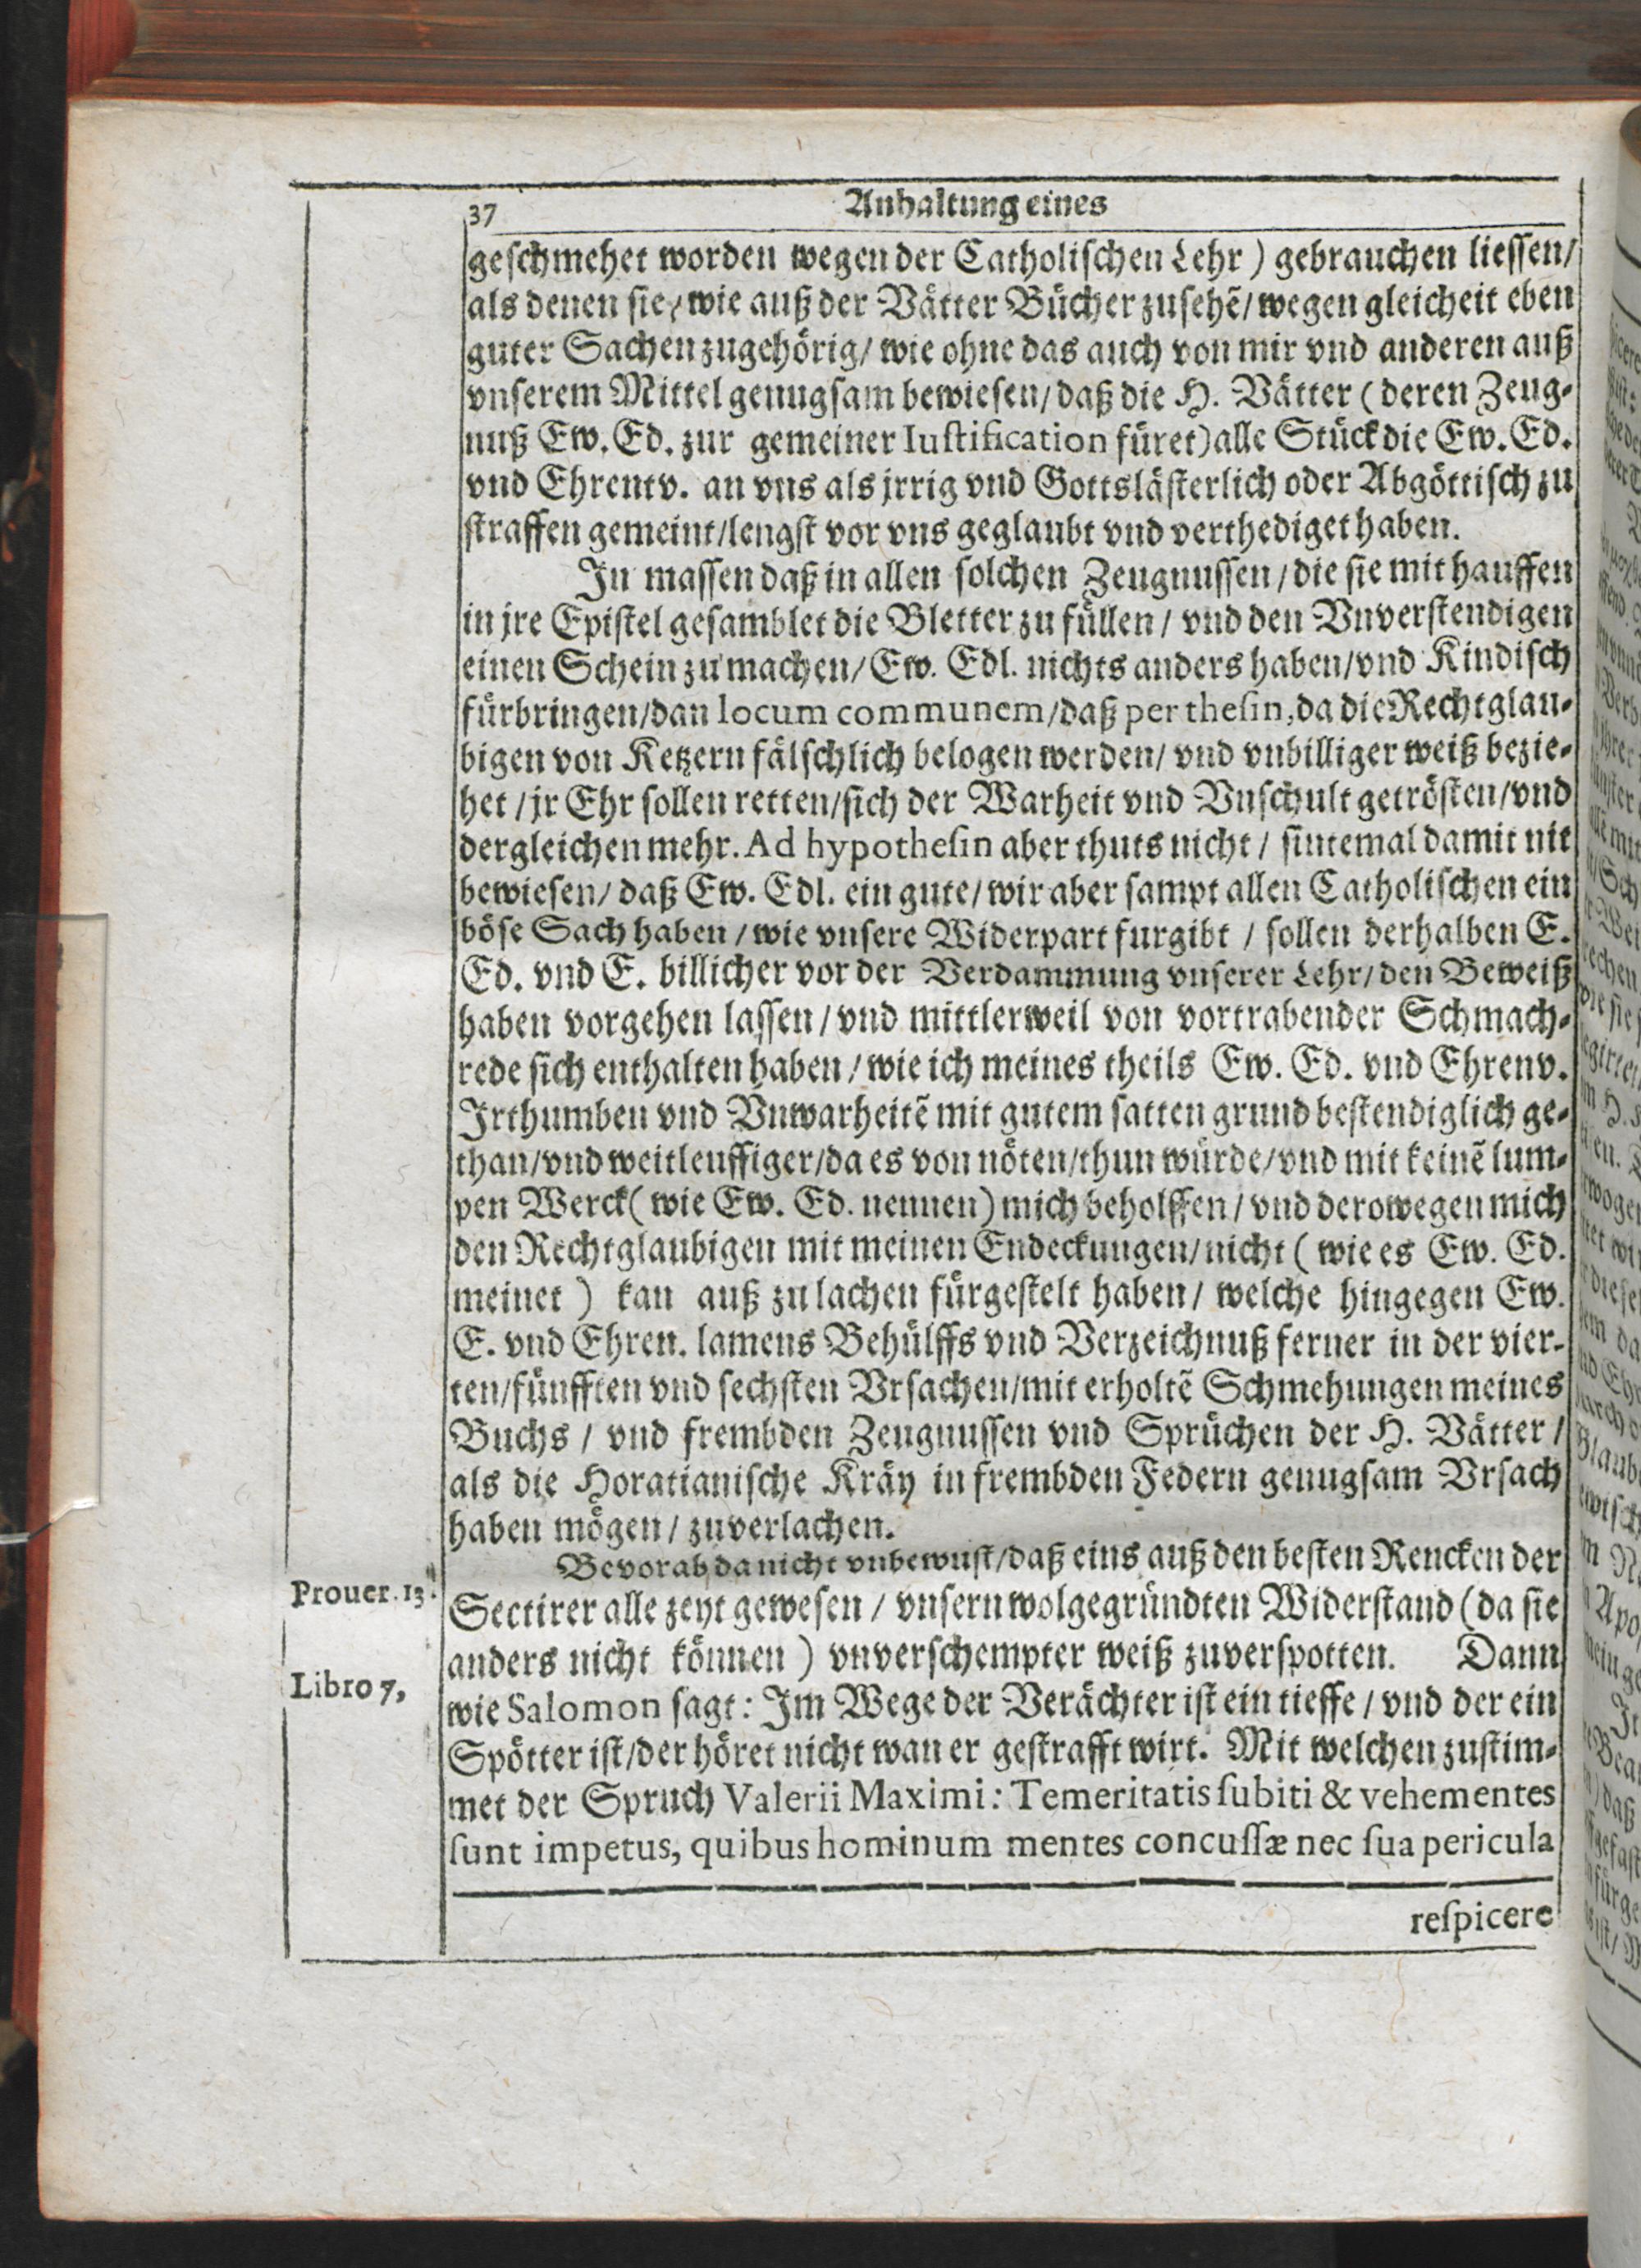 37 Anhaltung eines
geschmehet worden wegen der Catholischen Lehr) gebrauchen liessen/
als denen sie/ wie auß der Vätter Bücher zusehẽ/ wegen gleicheit eben
guter Sachen zugehörig/ wie ohne das auch von mir vnd anderen auß
vnserem Mittel genugsam bewiesen/ daß die H. Vätter (deren Zeug-
nuß Ew. Ed. zur gemeiner Iustification füret) alle Stück die Ew. Ed.
vnd Ehrentv. an vns als jrrig vnd Gottslästerlich oder Abgöttisch zu
straffen gemeint/ lengst vor vns geglaubt vnd verthediget haben.
In massen daß in allen solchen Zeugnussen/ die sie mit hauffen
in jre Epistel gesamblet die Bletter zu füllen/ vnd den Vnverstendigen
einen Schein zu machen/ Ew. Edl. nichts anders haben/ vnd Kindisch
fürbringen/ dan locum communem/ daß per thesin, da die Rechtglau-
bigen von Ketzern fälschlich belogen werden/ vnd vnbilliger weiß bezie-
het/ jr Ehr sollen retten/ sich der Warheit vnd Vnschult getrösten/ vnd
dergleichen mehr. Ad hypothesin aber thuts nicht/ sintemal damit nit
bewiesen/ daß Ew. Edl. ein gute/ wir aber sampt allen Catholischen ein
böse Sach haben/ wie vnsere Widerpart furgibt/ sollen derhalben E.
Ed. vnd E. billicher vor der Verdammung vnserer Lehr/ den Beweiß
haben vorgehen lassen/ vnd mittlerweil von vortrabender Schmach-
rede sich enthalten haben/ wie ich meines theils Ew. Ed. vnd Ehrenv.
Irthumben vnd Vnwarheitẽ mit gutem satten grund bestendiglich ge-
than/ vnd weitleuffiger/ da es von nöten/ thun würde/ vnd mit keinẽ lum-
pen Werck (wie Ew. Ed. nennen) mich beholffen/ vnd derowegen mich
den Rechtglaubigen mit meinen Endeckungen/ nicht (wie es Ew. Ed.
meinet) kan auß zu lachen fürgestelt haben/ welche hingegen Ew.
E. vnd Ehren. lamens Behülffs vnd Verzeichnuß ferner in der vier-
ten/ fünfften vnd sechsten Vrsachen/ mit erholtẽ Schmehungen meines
Buchs/ vnd frembden Zeugnussen vnd Sprüchen der H. Vätter/
als die Horatianische Kräy in frembden Federn genugsam Vrsach
haben mögen/ zuverlachen.
Bevorab da nicht vnbewust/ daß eins auß den besten Rencken der
Prouer. 13.
Sectirer alle zeyt gewesen/ vnsern wolgegründten Widerstand (da sie
anders nicht können) vnverschempter weiß zuverspotten. Dann
Libro 7,
wie Salomon sagt: Im Wege der Verächter ist ein tieffe/ vnd der ein
Spötter ist/ der höret nicht wan er gestrafft wirt. Mit welchen zustim-
met der Spruch Valerii Maximi: Temeritatis subiti & vehementes
sunt impetus, quibus hominum mentes concussæ nec sua pericula
respicere